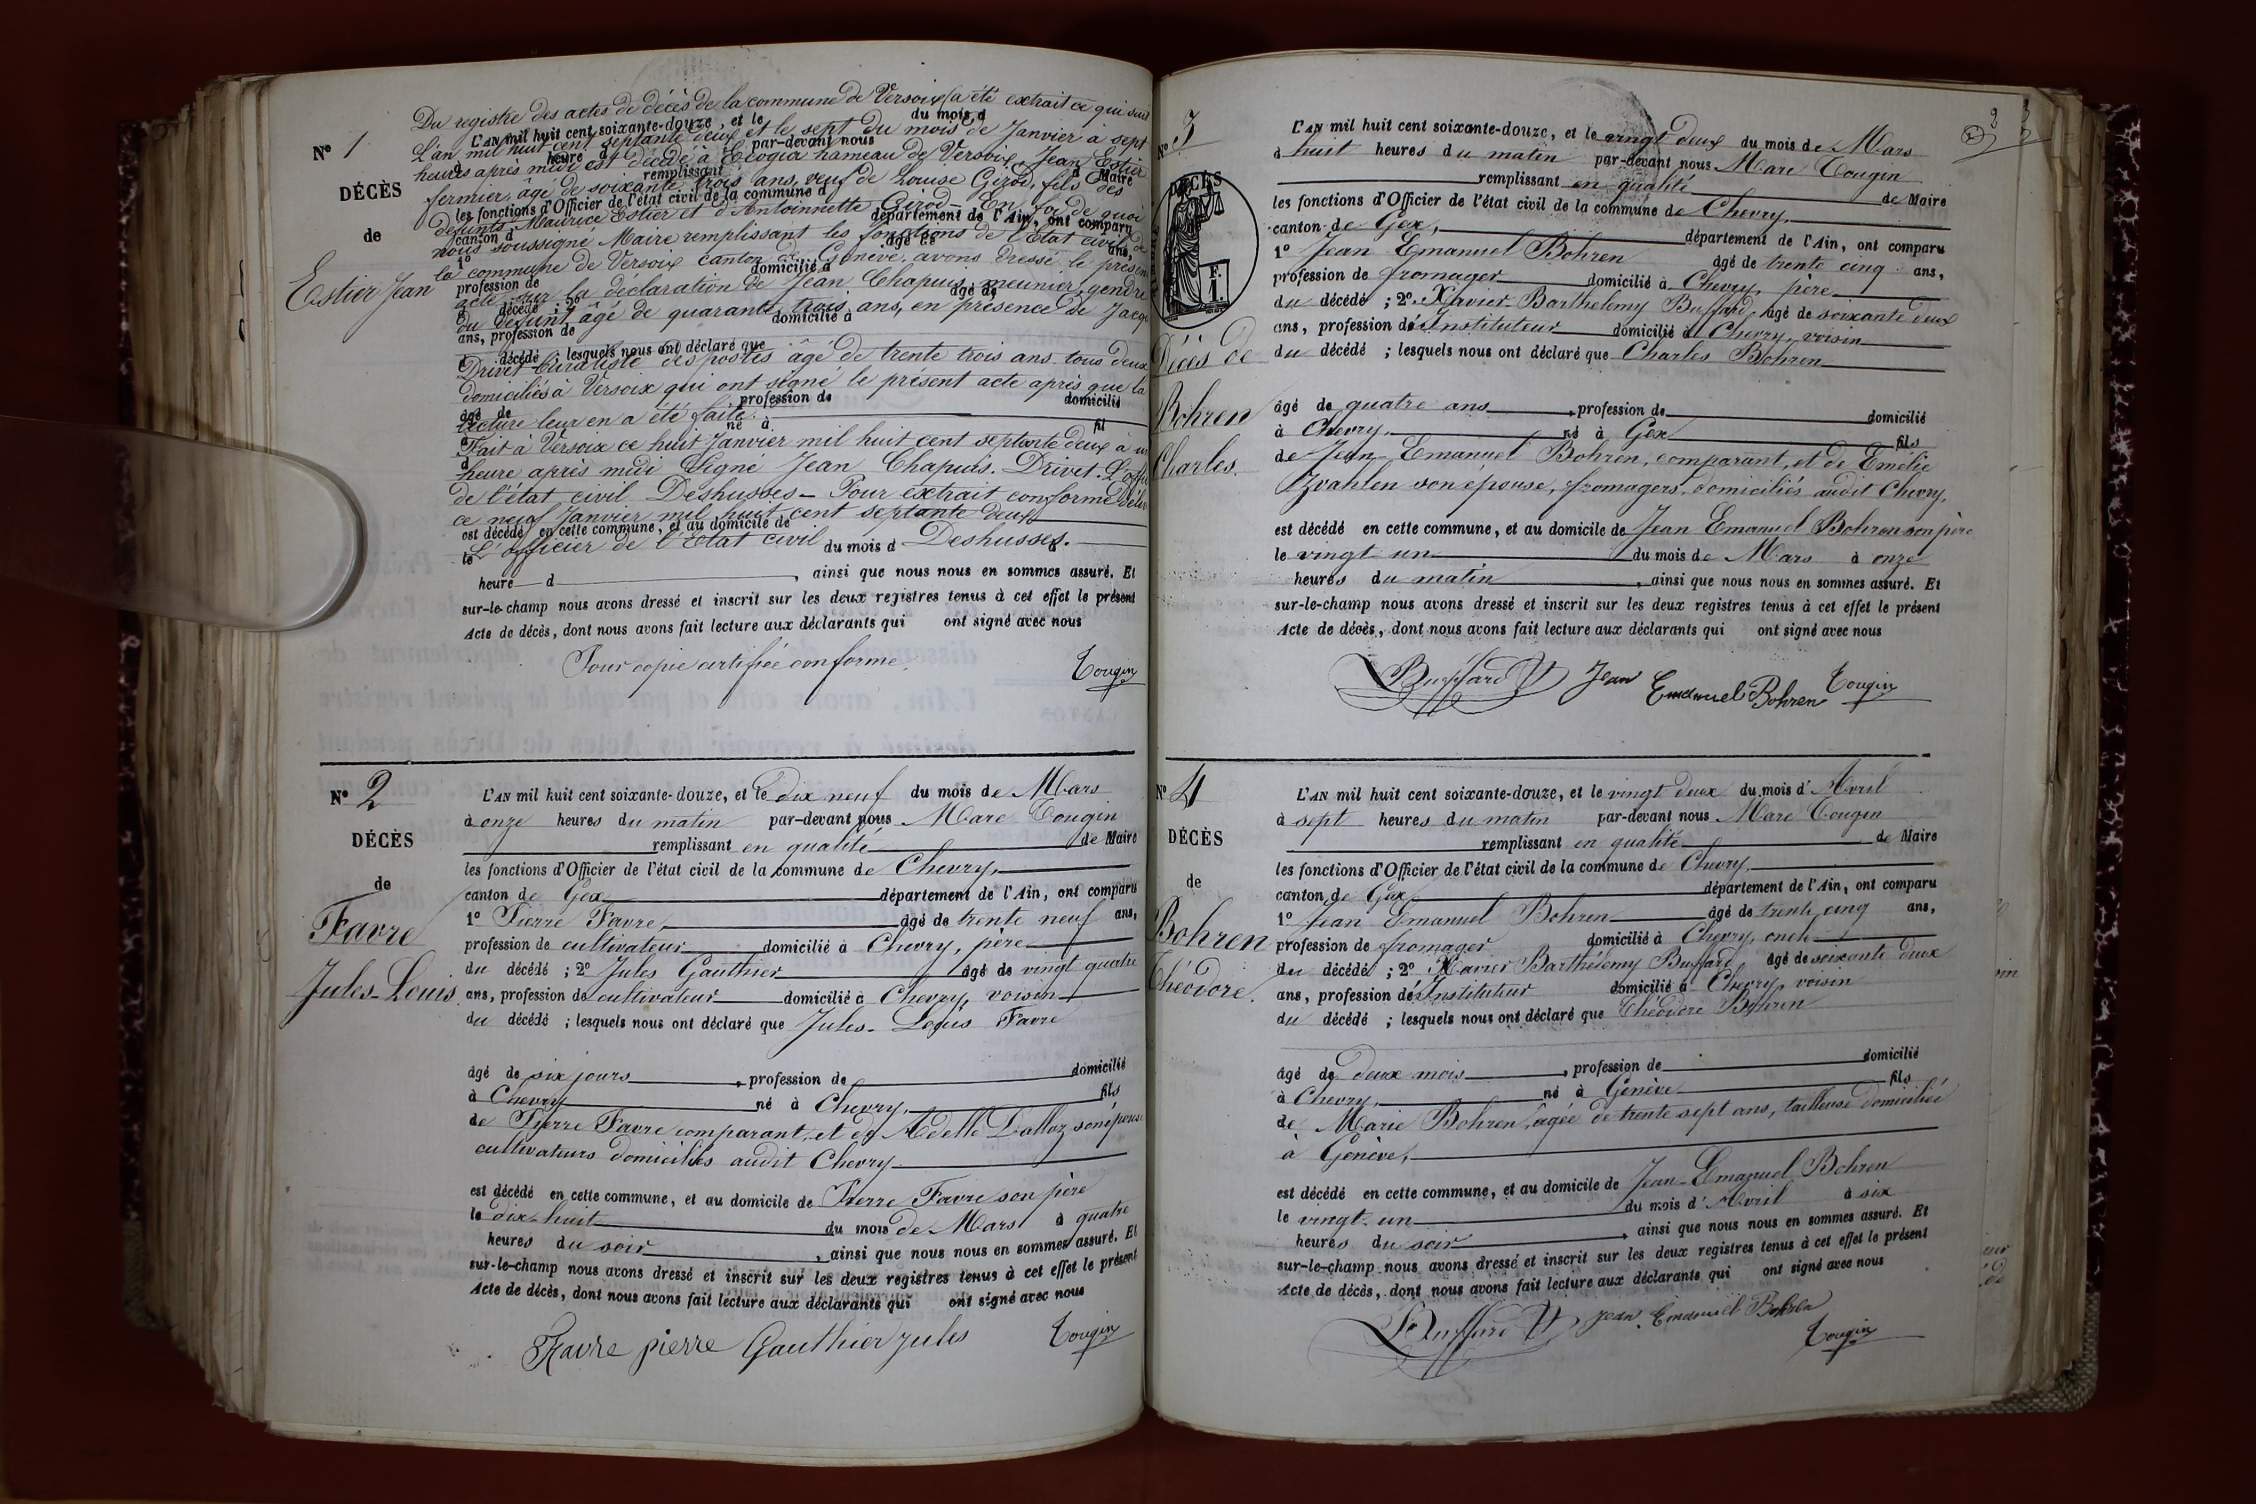 Du registre des actes de décès de la commune de Versoix a été extrait ce qui suit
N° 1
L'AN mil huit cent soixante-douze, et le du mois d
L'an mil huit cent septante deux et le sept du mois de Janvier à sept
heure d par-devant nous
heures après midi est décédé à Ecogia hameau de Versoix, Jean Estier
DÉCÈS
remplissant d Maire
fermier, âgé de soixante trois ans, veuf de Louise Girod, fils des
les fonctions d'Officier de l'état civil de la commune d
défunts Maurice Estier et d'Antoinette Girod – En foi de quoi
de
canton d département de l'Ain, ont comparu
nous soussigné Maire remplissant les fonctions de l'Etat civil de
1° âgé de ans,
la commune de Versoix canton de Genève, avons dressé le présent
Estier Jean
profession de domicilié à
acte sur la déclaration de Jean Chapuis, meunier, gendre
d décédé ; 2° âgé de
du défunt âgé de quarante trois ans, en présence de Jacq
ans, profession de domicilié à
décédé ; lesquels nous ont déclaré que
Drivet buraliste des postes âgé de trente trois ans tous deux
domiciliés à Versoix qui ont signé le présent acte après que la
âgé de profession de domicilié
lecture leur en a été faite.
à né à fil
Fait à Versoix ce huit Janvier mil huit cent septante deux à
d
heure après midi Signé Jean Chapuis. Drivet.
de l'état civil Deshusses – Pour extrait conforme
ce neuf Janvier mil huit cent septante deux
est décédé en cette commune, et au domicile de
L'officier de l'Etat civil Deshusses.
le du mois d à
heure d , ainsi que nous nous en sommes assuré. Et
sur-le-champ nous avons dressé et inscrit sur les deux registres tenus à cet effet le présent
Acte de décès, dont nous avons fait lecture aux déclarants qui ont signé avec nous
Pour copie certifiée conforme.
Tougin
N° 2
L'AN mil huit cent soixante-douze, et le dix neuf du mois de Mars
à onze heures du matin par-devant nous Marc Tougin
DÉCÈS
remplissant en qualité de Maire
les fonctions d'Officier de l'état civil de la commune de Chevry,
de
canton de Gex département de l'Ain, ont comparu
Favre
1° Pierre Favre, âgé de trente neuf ans,
profession de cultivateur domicilié à Chevry, père
du décédé ; 2° Jules Gauthier âgé de vingt quatre
Jules-Louis.
ans, profession de cultivateur domicilié à Chevry, voisin
du décédé ; lesquels nous ont déclaré que Jules-Louis Favre
âgé de six jours, profession de domicilié
à Chevry né à Chevry, fils
de Pierre Favre comparant, et de Adelle Dalloz son épouse
cultivateurs domiciliés audit Chevry.
est décédé en cette commune, et au domicile de Pierre Favre son père
le dix-huit du mois de Mars à quatre
heures du soir, ainsi que nous nous en sommes assuré. Et
sur-le-champ nous avons dressé et inscrit sur les deux registres tenus à cet effet le présent
Acte de décès, dont nous avons fait lecture aux déclarants qui ont signé avec nous
Favre pierre Gauthier jules Tougin
2
N° 3
L'AN mil huit cent soixante-douze, et le vingt deux du mois de Mars
à huit heures du matin par-devant nous Marc Tougin
DÉCÈS
remplissant en qualité de Maire
les fonctions d'Officier de l'état civil de la commune de Chevry,
canton de Gex, département de l'Ain, ont comparu
1° Jean Emanuel Bohren âgé de trente cinq ans,
profession de fromager domicilié à Chevry, père
F.
I.
du décédé ; 2° Xavier Barthélemy Buffard, âgé de soixante deux
ans, profession d'Instituteur domicilié à Chevry, voisin
Décès de
du décédé ; lesquels nous ont déclaré que Charles Bohren
Bohren
âgé de quatre ans, profession de domicilié
à Chevry, né à Gex fils
Charles.
de Jean-Emanuel Bohren, comparant, et de Emélie
Zvahlen son épouse, fromagers, domiciliés audit Chevry,
est décédé en cette commune, et au domicile de Jean Emanuel Bohren son père
le vingt un du mois de Mars à onze
heures du matin, ainsi que nous nous en sommes assuré. Et
sur-le-champ nous avons dressé et inscrit sur les deux registres tenus à cet effet le présent
Acte de décès, dont nous avons fait lecture aux déclarants qui ont signé avec nous
Buffard Jean Emanuel Bohren Tougin
N° 4
L'AN mil huit cent soixante-douze, et le vingt deux du mois d'Avril
à sept heures du matin par-devant nous Marc Tougin
DÉCÈS
remplissant en qualité de Maire
les fonctions d'Officier de l'état civil de la commune de Chevry,
de
canton de Gex département de l'Ain, ont comparu
Bohren
1° Jean Emanuel Bohren âgé de trente cinq ans,
profession de fromager domicilié à Chevry, oncle
du décédé ; 2° Xavier Barthélemy Buffard, âgé de soixante deux
Théodore.
ans, profession d'Instituteur domicilié à Chevry, voisin
du décédé ; lesquels nous ont déclaré que Théodore Bohren
âgé de deux mois, profession de domicilié
à Chevry, né à Genève fils
de Marie Bohren, âgée de trente sept ans, tailleuse domiciliée
à Genève,
est décédé en cette commune, et au domicile de Jean-Emanuel Bohren
le vingt-un du mois d'Avril à six
heures du soir, ainsi que nous nous en sommes assuré. Et
sur-le-champ nous avons dressé et inscrit sur les deux registres tenus à cet effet le présent
Acte de décès, dont nous avons fait lecture aux déclarants qui ont signé avec nous
Buffard Jean Emanuel Bohren
Tougin